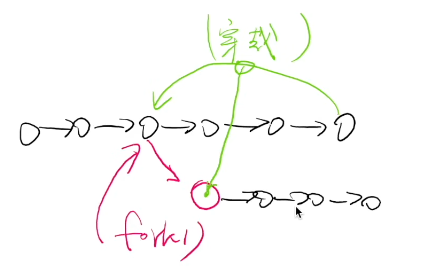 (穿哉)
(fork1)